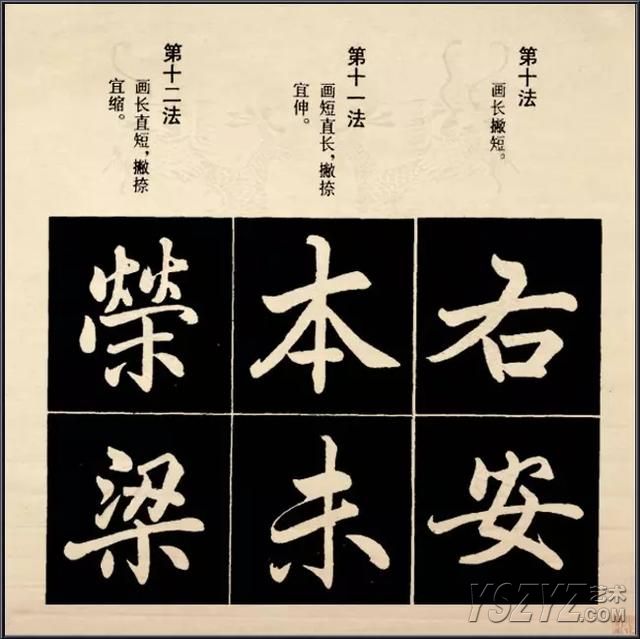 第十法
画长撇短。
第十一法
画短直长，撇捺
宜伸。
第十二法
画长直短，撇捺
宜缩。
右
安
本
未
榮
梁
YSZYZ艺术.COM